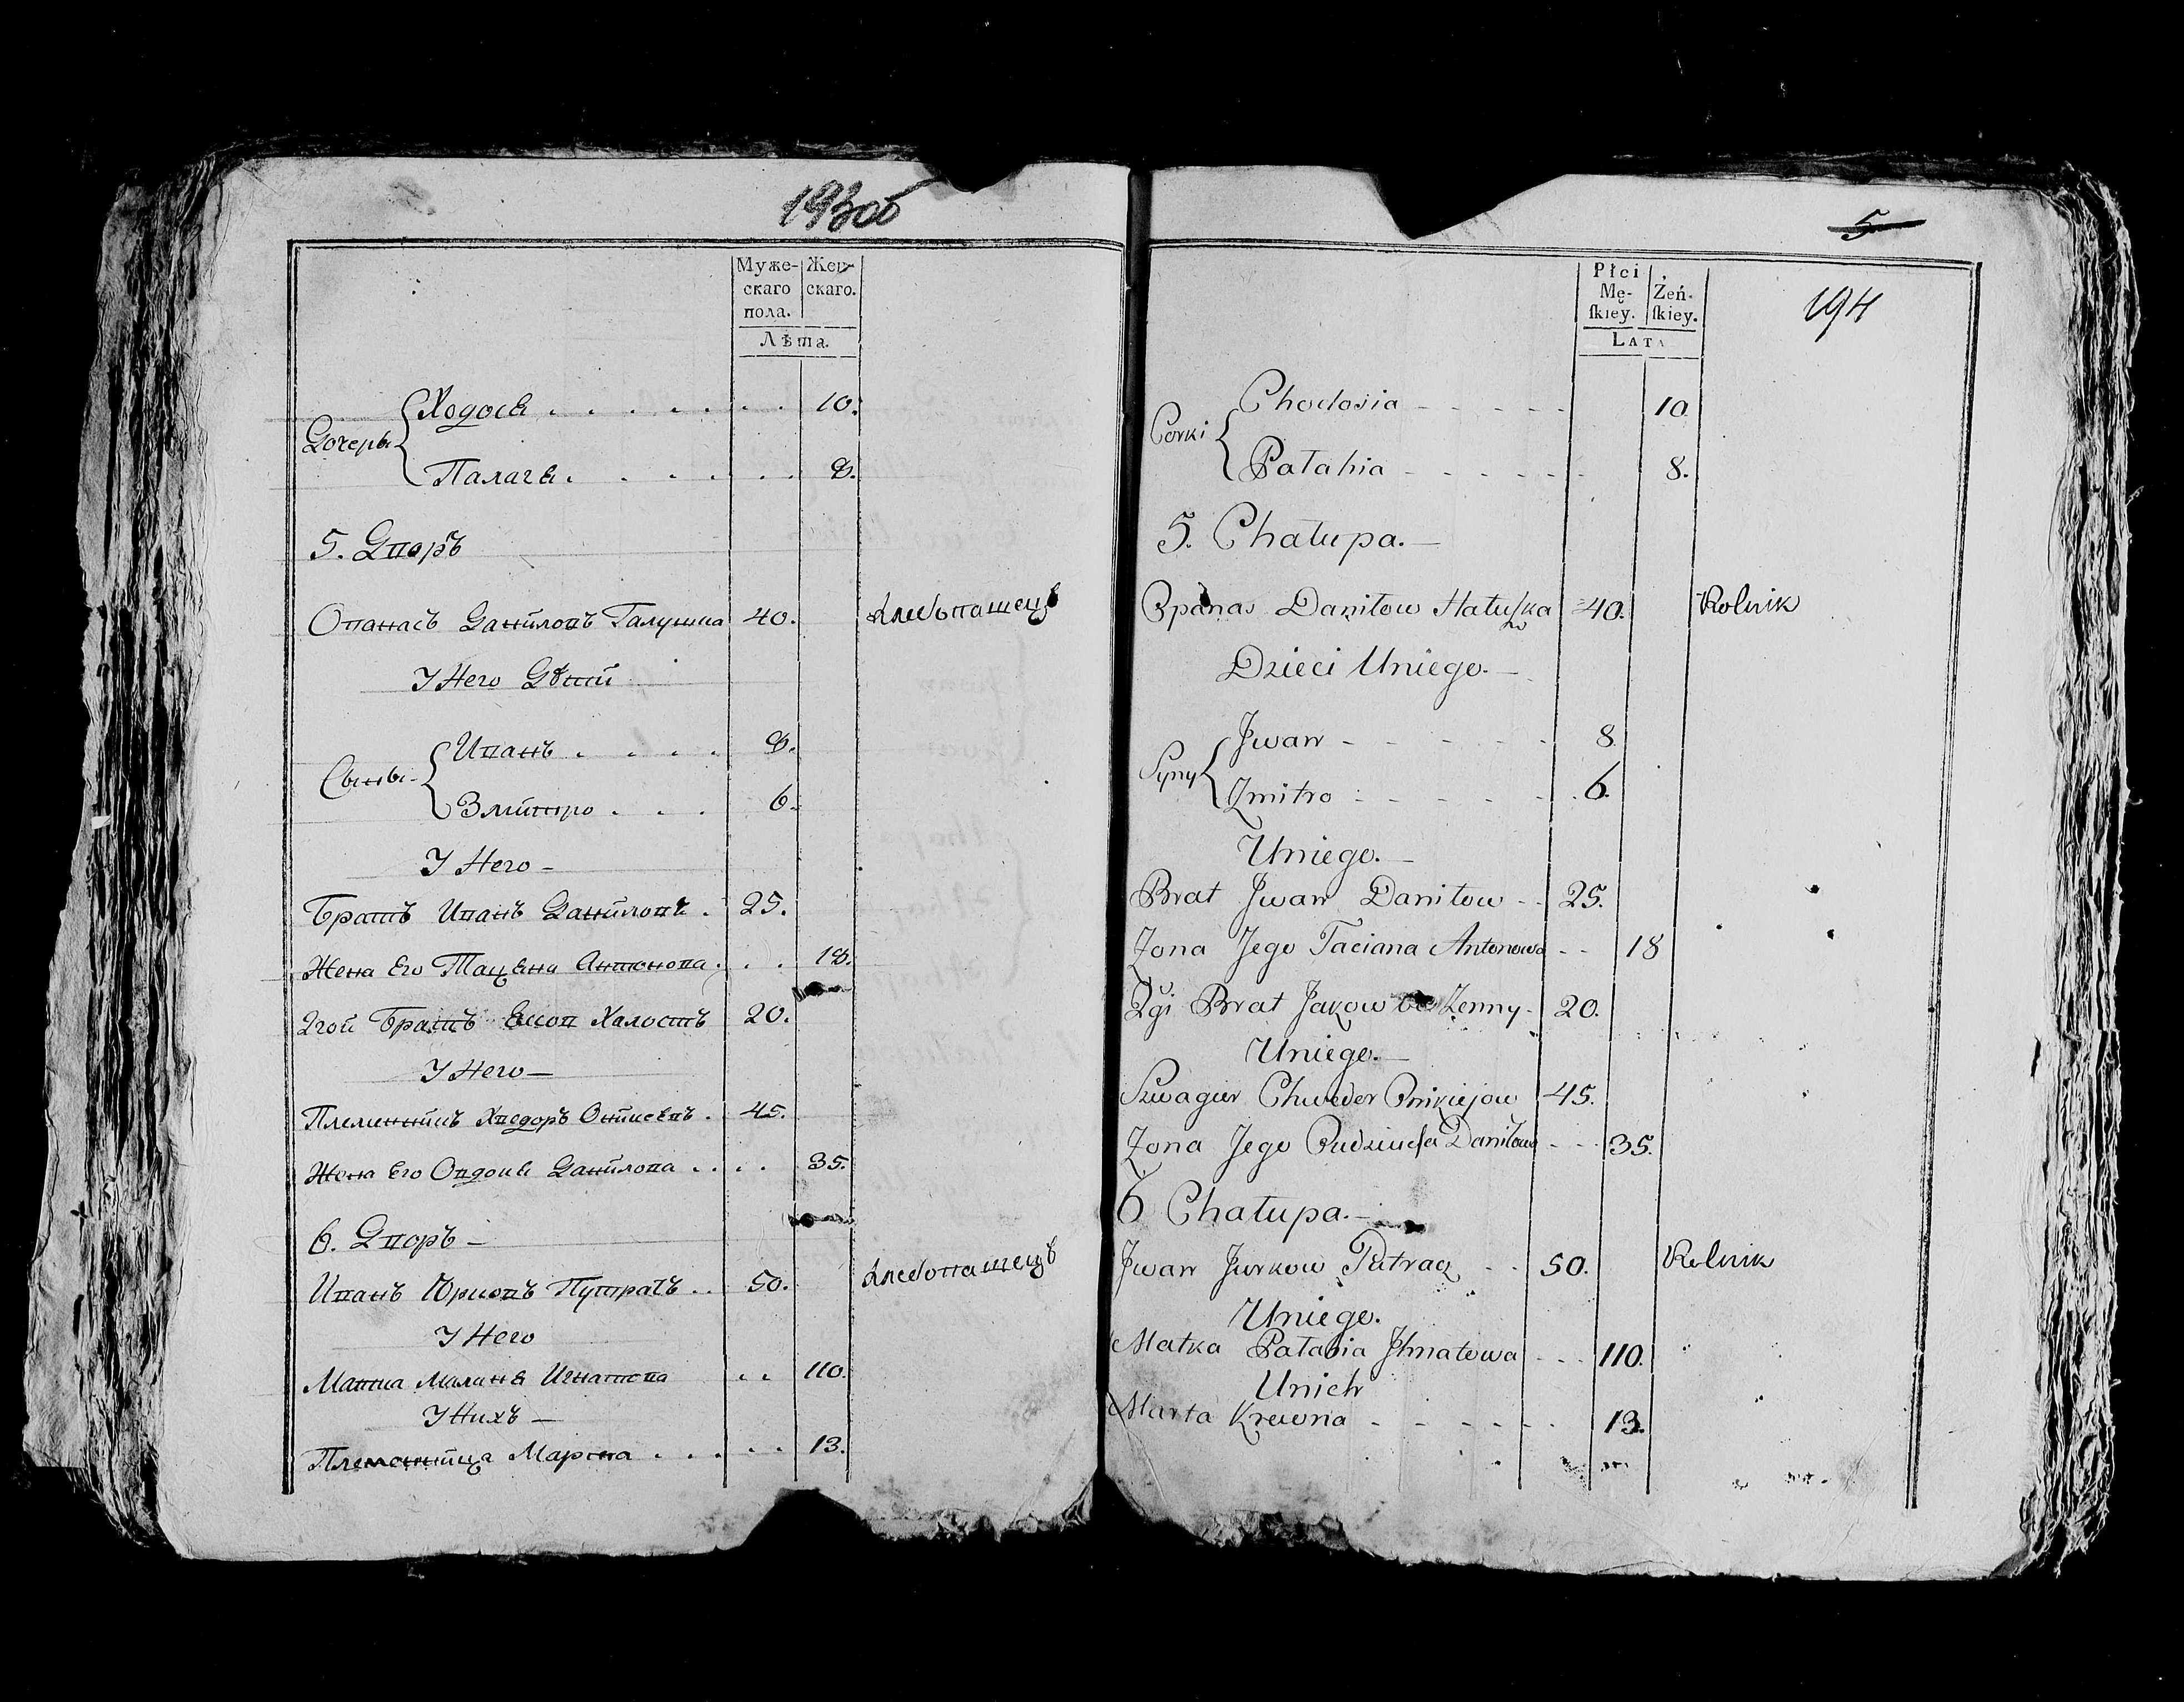 193об
Муже-
скаго
пола.
Жен-
скаго.
Лѣта.
Дочеры
Ходося . . . . . . . 10.
Палагѣя . . . . . 8.
5. Дворъ
Опанасъ Даниловъ Галушка 40. хлебопашецъ
У Него Дѣти
Сыны
Иванъ . . . . 8.
Змитро . . . 6.
У Него –
Братъ Иванъ Даниловъ . 25.
Жена Его Тацяна Антонова . . . 18.
2гой Братъ Холостъ 20.
У Него –
Племенникъ Хведоръ 45.
Жена Его Овдокя Данилова . . . . 35.
6. Дворъ –
Иванъ Юрковъ Путрачъ . . 50. хлебопашецъ
У Него
Матка Игнатова . . 110.
У Нихъ –
Племенница Марта . . . . . 13.
5
194
Płci
Mę-
ſkiey.
Żeń-
ſkiey.
LATA
Corki
Chodosia - - - - - 10.
Pałahia - - - - - - 8.
5. Chałupa. –
Opanas Daniłow Hałuſka 40. Rolnik
Dzieci Uniego. –
Syny
Jwan - - - - - 8.
Zmitro - - - - - 6.
Uniego. –
Brat Jwan Daniłow - - 25.
Zona Jego Taciana Antonowa - - 18
2gi Brat Jakow Zenny - 20.
Uniego. –
Szwagier Chweder Onikiejow 45.
Zona Jego Daniłowa - - - 35.
6 Chałupa. –
Jwan Jurkow Putracz - - 50. Rolnik
Uniego.
Matka Pałahia Jhnatowa - - - 110.
Unich
Marta Krewna - - - - - - 13.